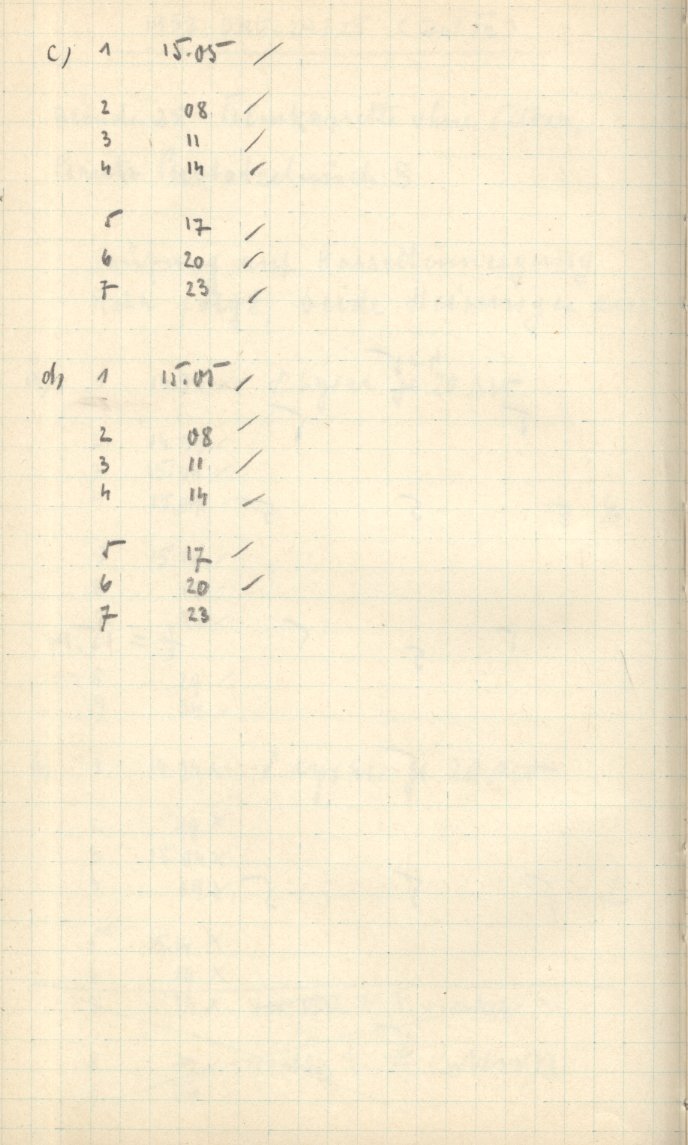 c) 1 15.05 /
2 08 /
3 11 /
4 14 /
5 17 /
6 20 /
7 23 /
d) 1 15.05 /
2 08 /
3 11 /
4 14 /
5 17 /
6 20 /
7 23